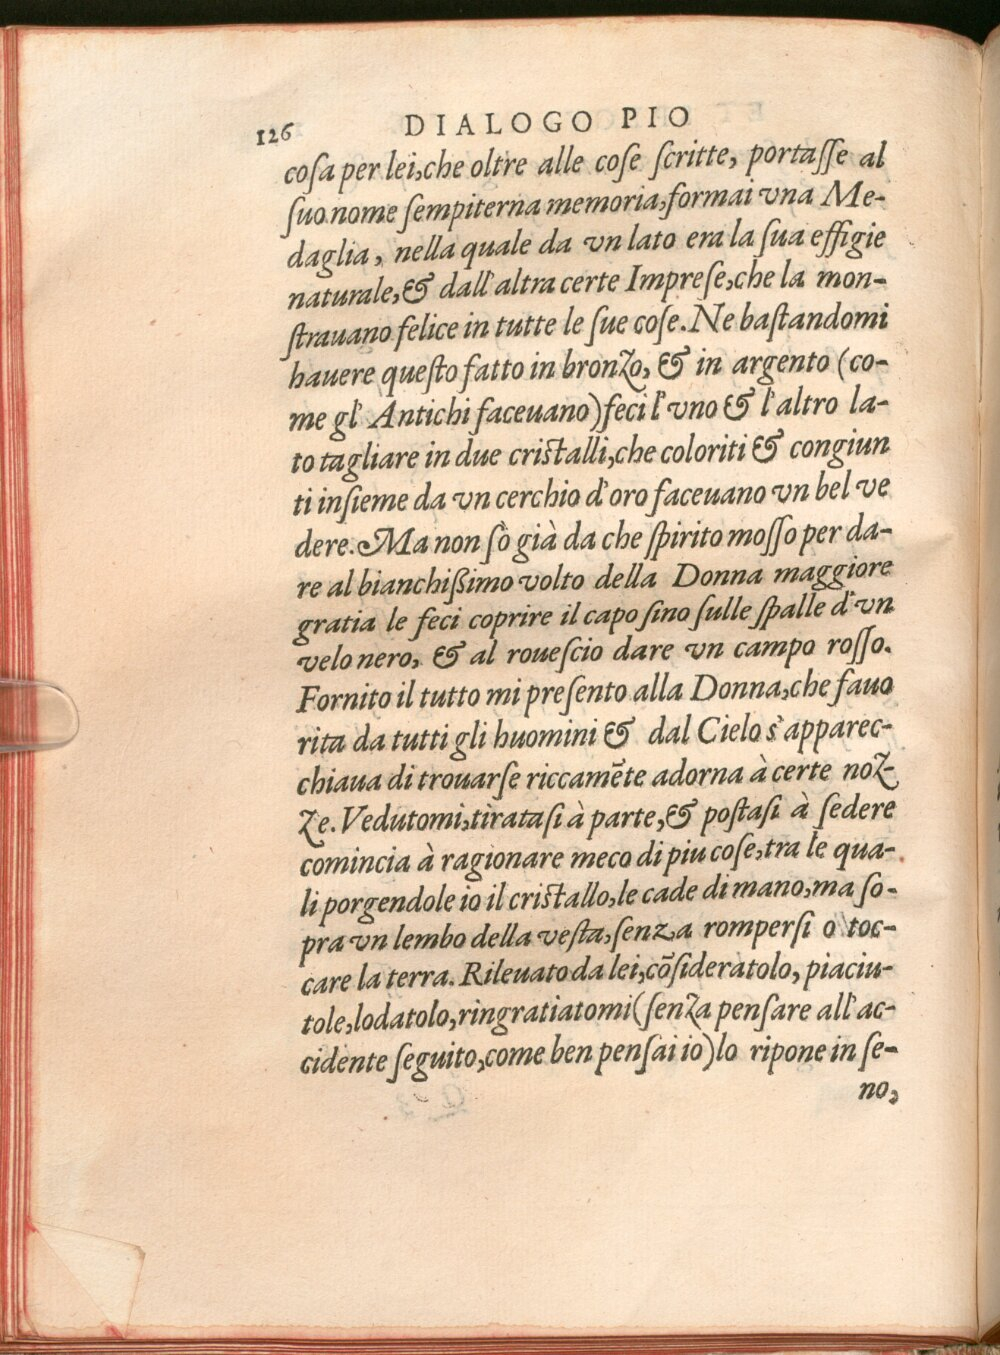 126 DIALOGO PIO
coſa per lei,che oltre alle coſe ſcritte, portaſſe al
ſuo nome ſempiterna memoria,formai vna Me-
daglia, nella quale da vn lato era la ſua effigie
naturale,& dall'altra certe Impreſe,che la mon-
ſtrauano felice in tutte le ſue coſe. Ne baſtandomi
hauere queſto fatto in bronzo, & in argento (co-
me gl' Antichi faceuano) feci l'vno & l'altro la-
to tagliare in due criſtalli,che coloriti & congiun
ti inſieme da vn cerchio d'oro faceuano vn bel ve
dere. Ma non ſò già da che ſpirito moſſo per da-
re al bianchißimo volto della Donna maggiore
gratia le feci coprire il capo ſino ſulle ſpalle d'vn
velo nero, & al roueſcio dare vn campo roſſo.
Fornito il tutto mi preſento alla Donna,che fauo
rita da tutti gli huomini & dal Cielo s'apparec-
chiaua di trouarſe riccamẽte adorna à certe noz-
ze. Vedutomi,tirataſi à parte,& poſtaſi à ſedere
comincia à ragionare meco di piu coſe,tra le qua-
li porgendole io il criſtallo,le cade di mano,ma ſo-
pra vn lembo della veſta,ſenza romperſi o toc-
care la terra. Rileuato da lei,cõſideratolo, piaciu-
tole,lodatolo,ringratiatomi (ſenza penſare all'ac-
cidente ſeguito,come ben penſai io) lo ripone in ſe-
no,